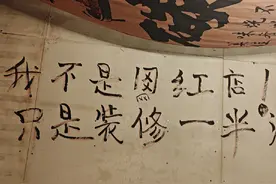 我不是网红店！
只是装修一半